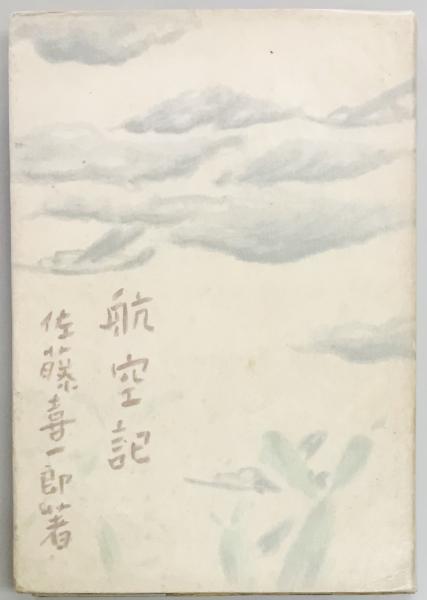 航空記
佐藤喜一郎著